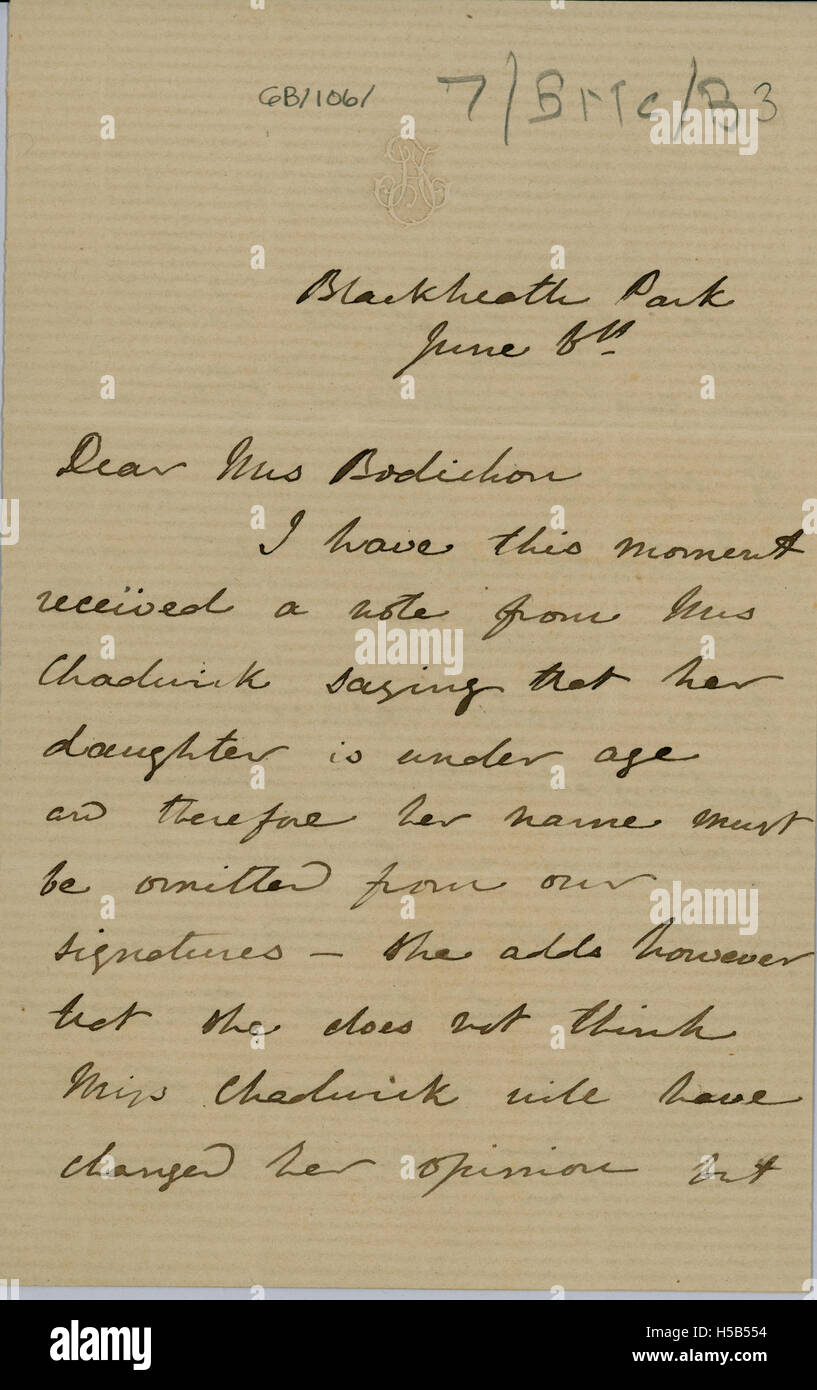 GB/106/ 7/BMC/B3
Blackheath Park
June 6th
Dear Mrs Bodichon
I have this moment
received a note from Mrs
Chadwick saying that her
daughter is under age
and therefore her name must
be omitted from our
signatures – she adds however
that she does not think
Miss Chadwick will have
changed her opinion but
a
alamy
alamy stock photo
H5B554
www.alamy.com